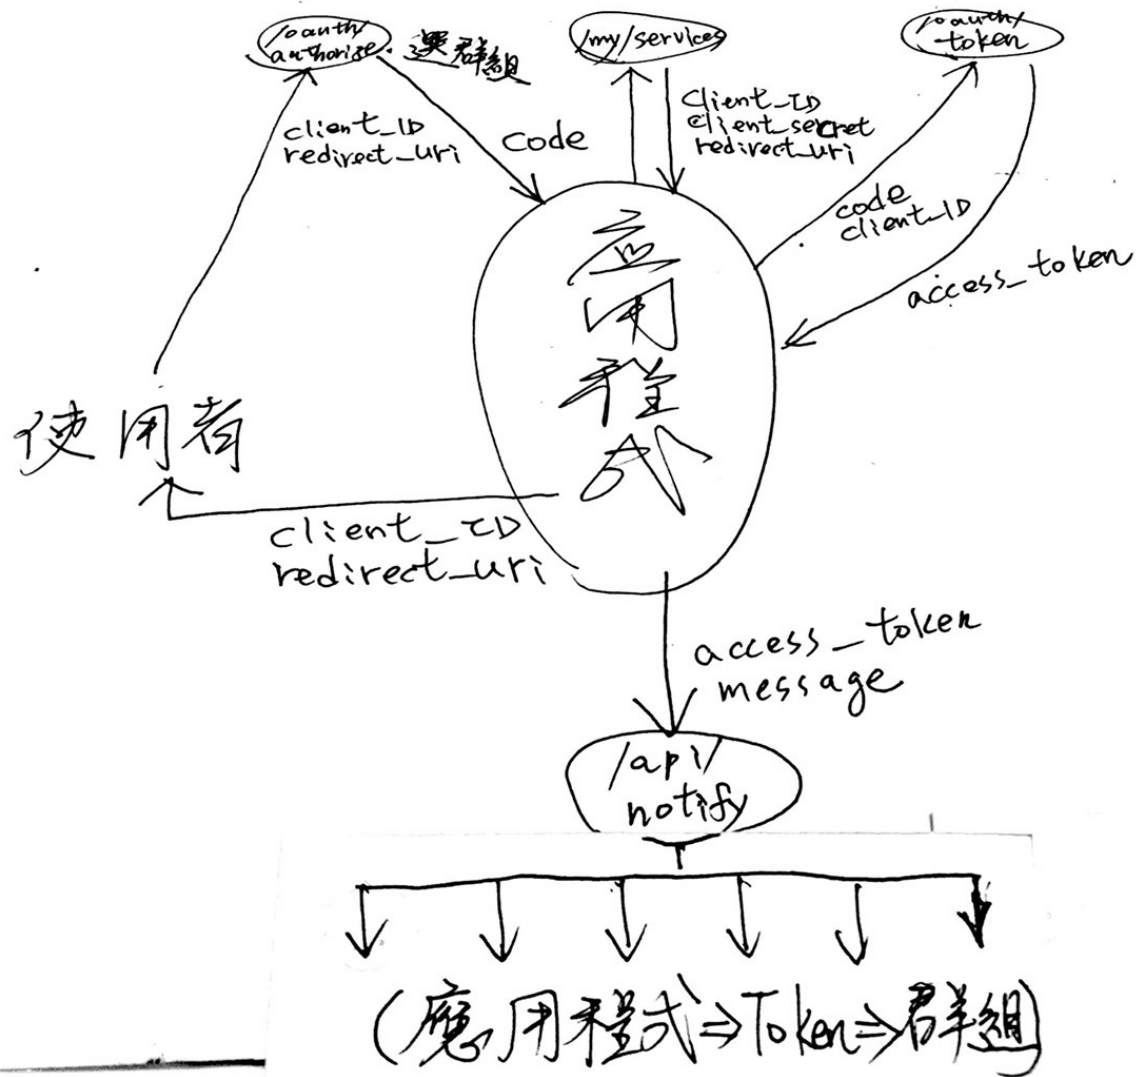 /oauth/
authorize
選群組
/my/services
/oauth/
token
client_ID
redirect_uri
code
client_ID
client_secret
redirect_uri
code
client_ID
access_token
应
用
程
式
使用者
client_ID
redirect_uri
access_token
message
/api/
notify
(應用程式⇒Token⇒群組)